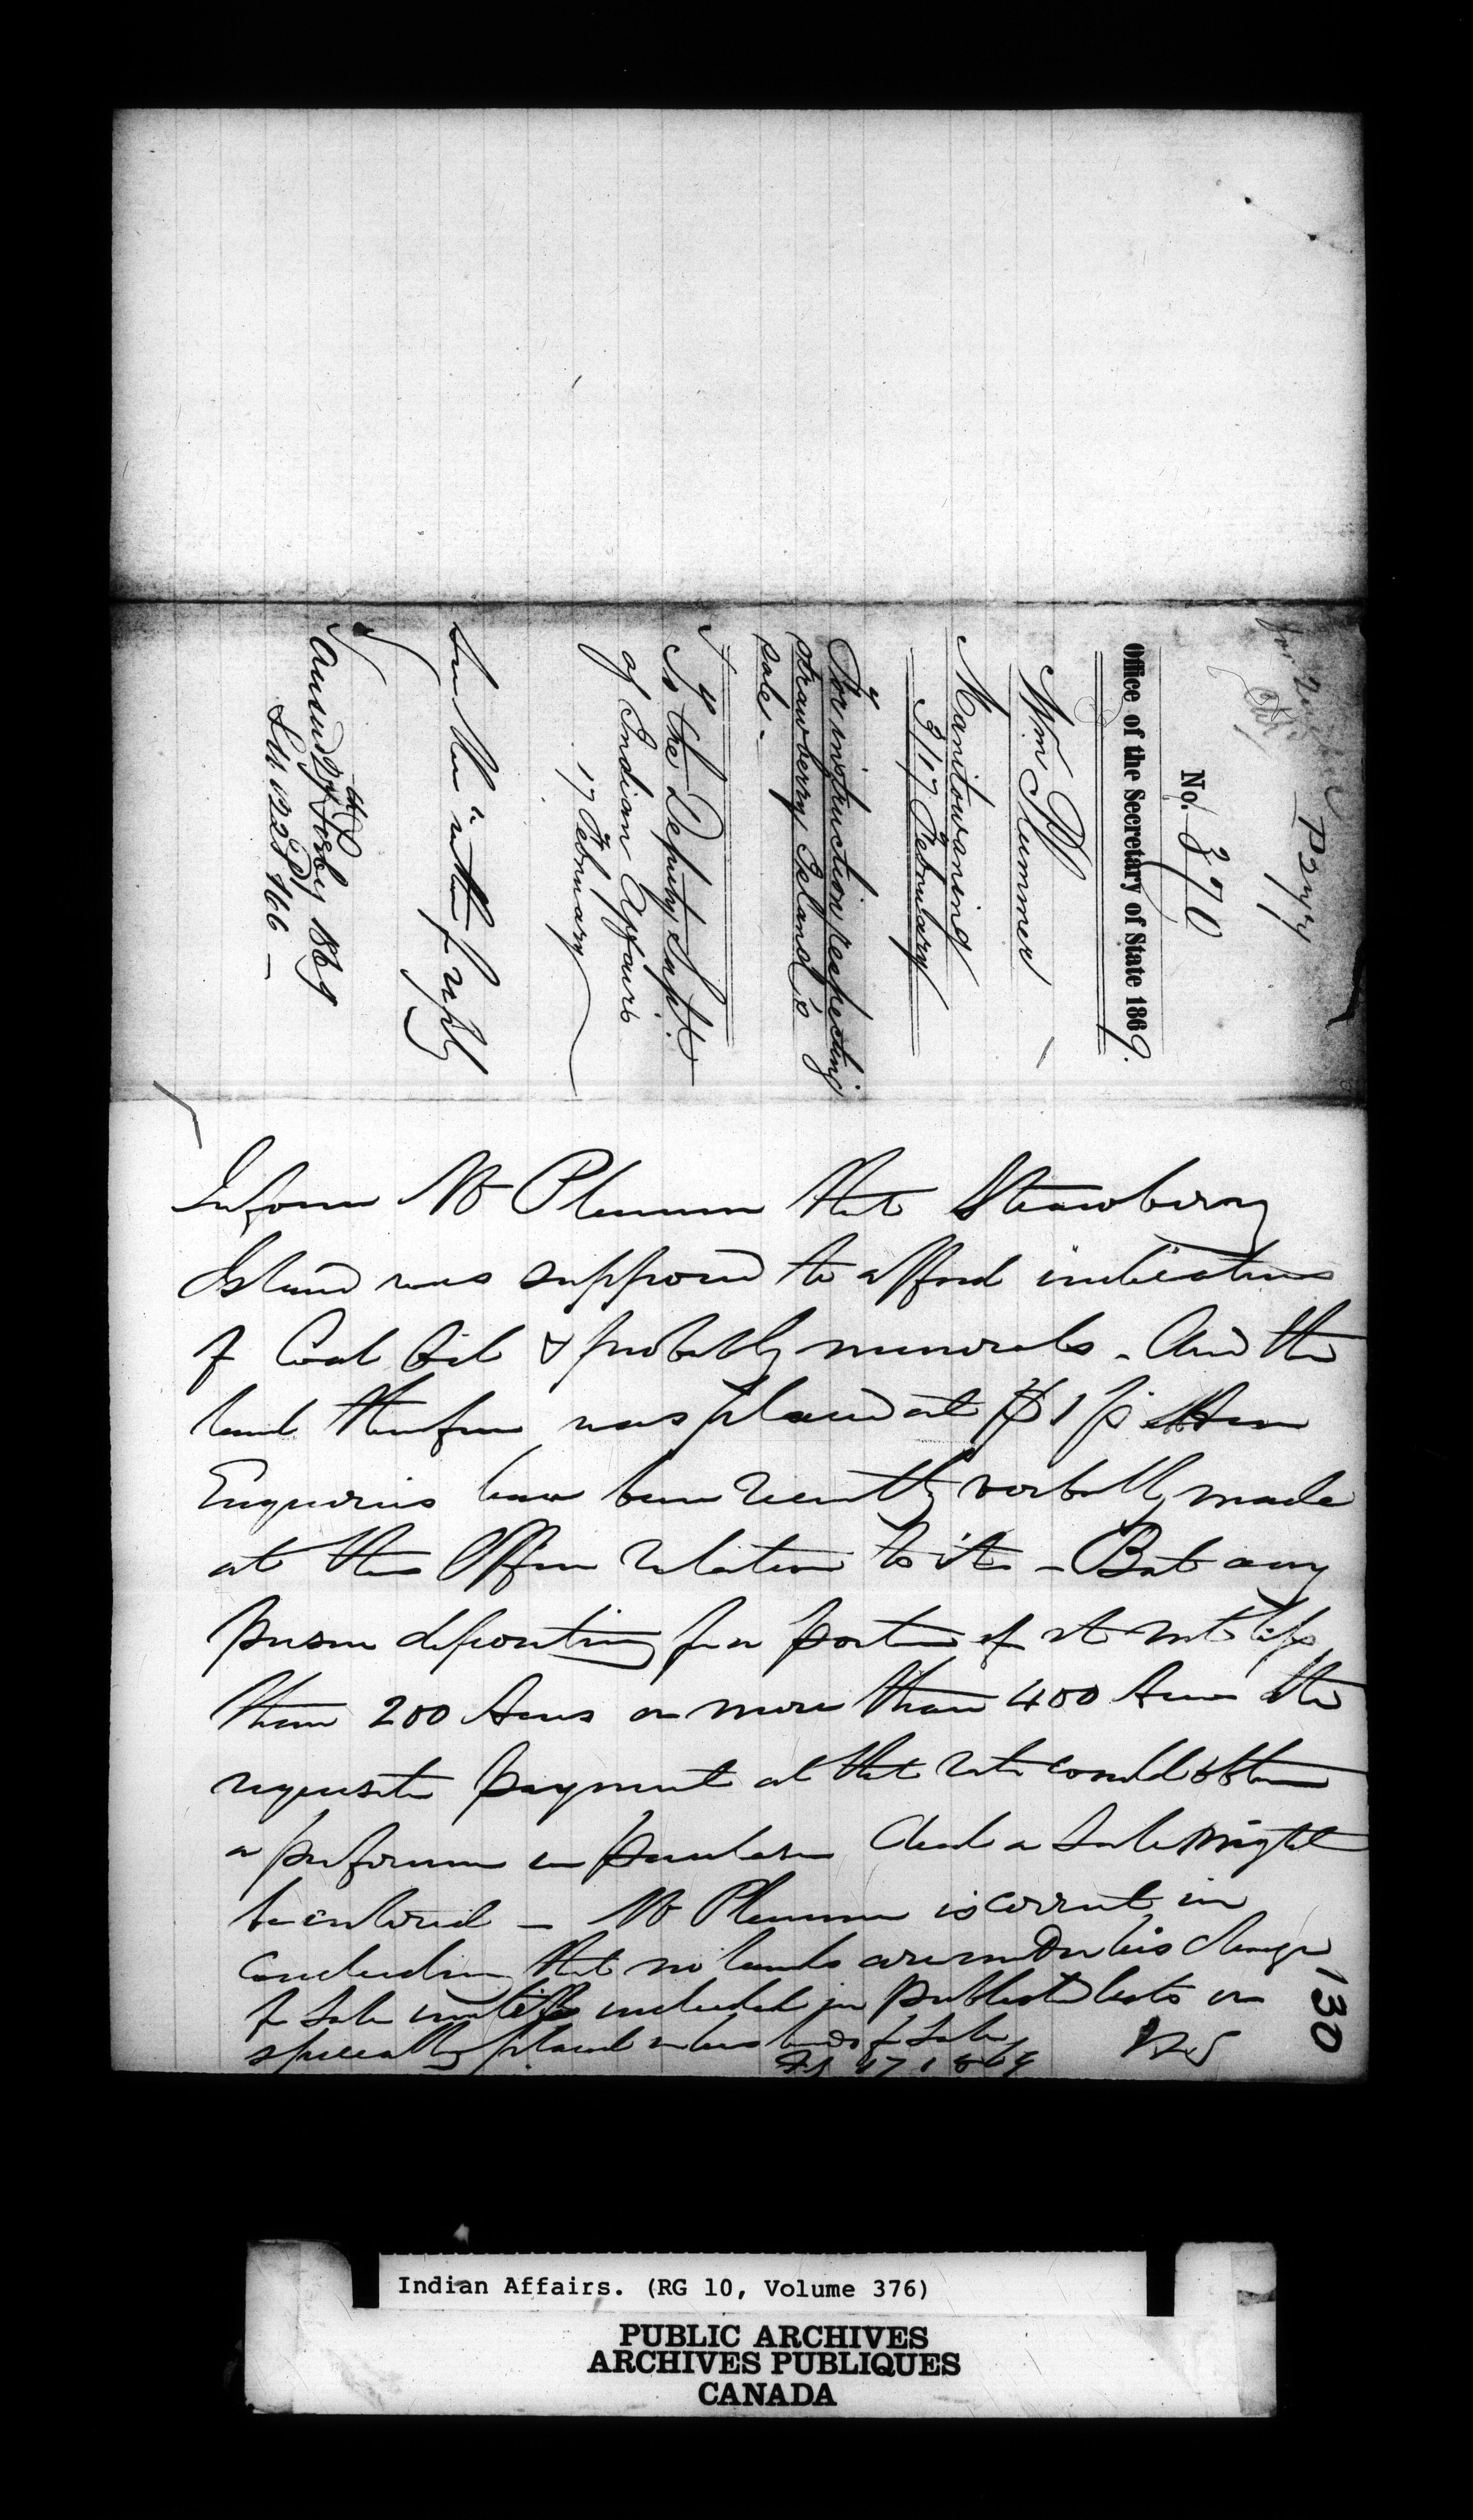 P 277
No. 370
Office of the Secretary of State 1869.
Wm Plummer
Manitowaning
3/17 February
For instruction respecting
Strawberry Island's
sale.
To the Deputy Supt
of Indian Affairs
17 February
See Mem within for reply
Answd 27th Feby 1869
Inform Mr Plummer that Strawberry
Island was supposed to afford indications
of Coal Oil & probably minerals. And the
land therefore was placed at $1 p. Acre
Enquiries have been recently verbally made
at this Office relative to it - But any
person depositing for a portion of it not less
than 200 Acres or more than 400 Acres the
requisite payment at that rate could obtain
a preference in purchase And a Sale might
be entered - Mr Plummer is correct in
concluding that no lands are under his charge
for Sale unless included in published lists or
specially placed in his hands for Sale
Feb 17 1869
130
Indian Affairs. (RG 10, Volume 376)
PUBLIC ARCHIVES
ARCHIVES PUBLIQUES
CANADA